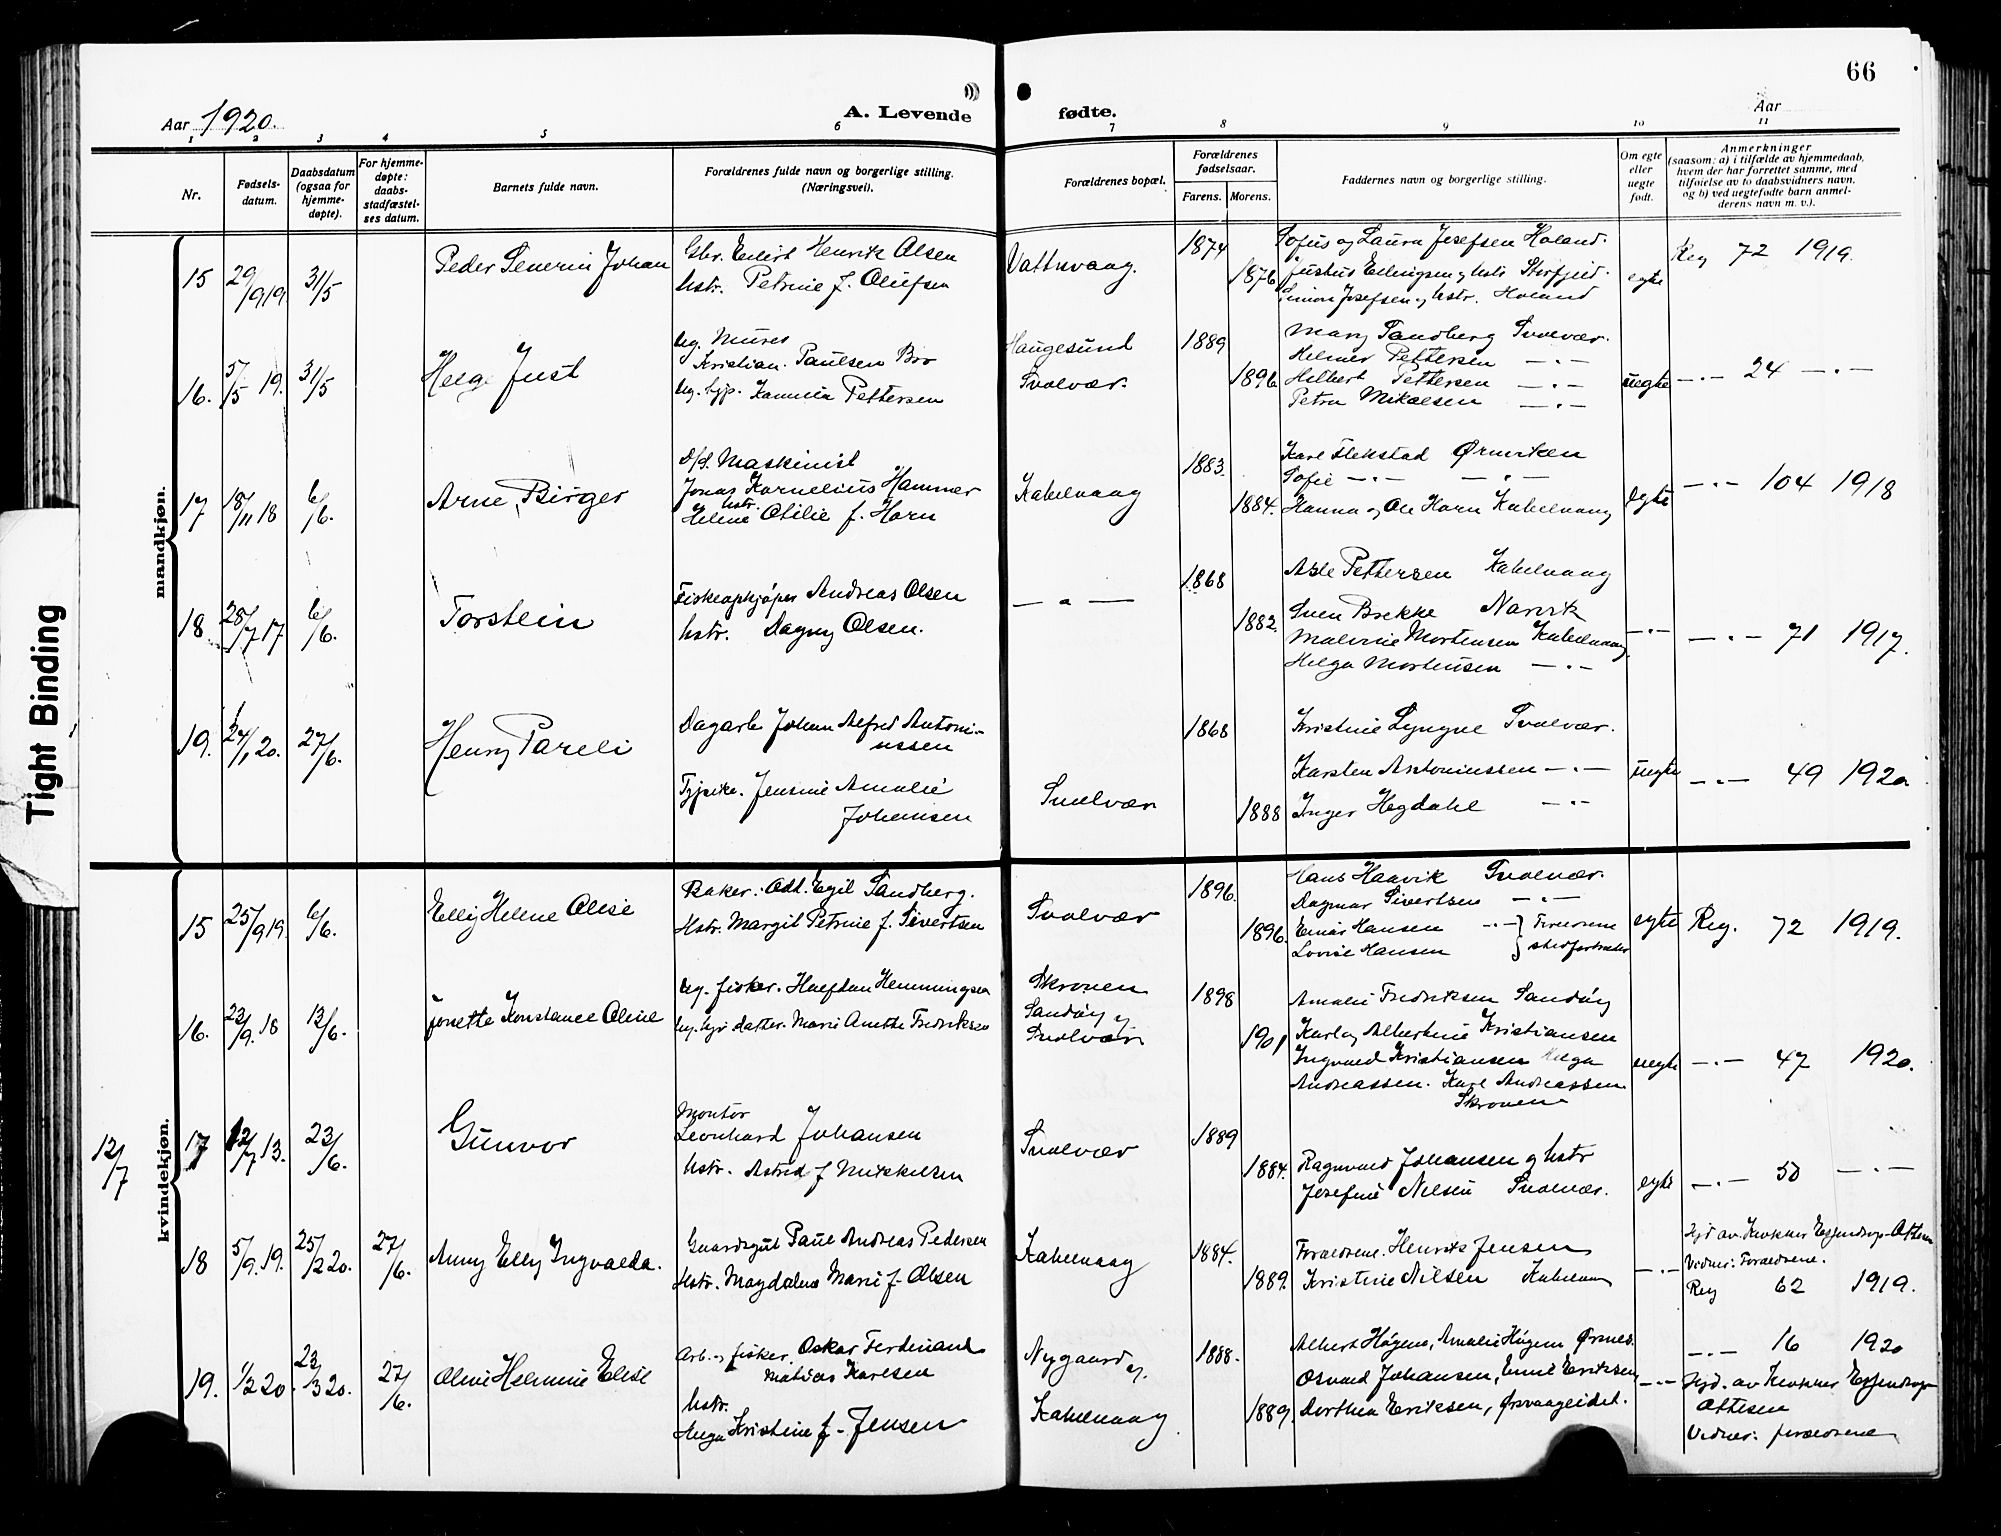 66
Aar 1920.
A. Levende fødte.
Aar
1 2 3 4 5 6 7 8 9 10 11
Nr.
Fødsels-
datum.
Daabsdatum
(ogsaa for
hjemme-
døpte).
For hjemme-
døpte:
daabs-
stadfæstel-
ses datum.
Barnets fulde navn.
Forældrenes fulde navn og borgerlige stilling.
(Næringsvei).
Forældrenes bopæl.
Forældrenes
fødselsaar.
Farens. Morens.
Faddernes navn og borgerlige stilling.
Om egte
eller
uegte
født.
Anmerkninger
(saasom: a) i tilfælde av hjemmedaab,
hvem der har forrettet samme, med
tilføielse av to daabsvidners navn,
og b) ved uegtefødte barn anmel-
derens navn m. v.).
mandkjøn.
15 29/9 19. 31/5
Peder Severin Johan
Gbr. Henrik Olsen
hstr. Petrine f. Olufsen
1874
1876
Sofus og Laura Josefsen Holand.
Justus Ellingsen og hstr.
Simon Josefsen og hstr. Holand
egte
Reg 72 1919.
16. 5/5 19. 31/5
Helge Just
Ug. Murer
Kristian Paulsen Bro
Ug. tjp. Kamilla Pettersen
Haugesund
Svolvær.
1889
1896
Mary Sandberg Svolvær.
Helmer Pettersen — " —
Hilbert Pettersen — " —
Petra Mikalsen — " —
uegte
— " — 24 — " —
17 18/11 18 6/6.
Arne Birger
D/S. Maskinist
Jonas Kornelius Hammer
hstr.
Helene Otilie f. Horn
Kabelvaag
1883.
1884.
Karl Flekstad Ørnviken
Sofie — " — — " —
Hanna og Ole Horn Kabelvaag
egte
— " — 104 1918
18. 28/7 17 6/6.
Torstein
Fiskeopkjøper Andreas Olsen
hstr. Dagny Olsen.
— " —
1868
1882.
Asle Pettersen Kabelvaag
Sven Brekke Narvik
Malvine Mortensen Kabelvaag.
Helga Mortensen — " —
— " —
— " — 71 1917.
19. 24/1 20. 27/6.
Henry Pareli
Dagarb. Johan Alfred Antoni-
ussen
Tjpike. Jensine Amalie
Johansen
Svolvær
1868
1888
Kristine Lyngve Svolvær.
Karsten Antoniussen — " —
Inger Hegdahl — " —
uegte
— " — 49 1920
kvindekjøn.
15 25/9 19. 6/6.
Elly Helene Olise
Baker: Odd. Egil Sandberg.
Hstr. Margit Petrine f. Sivertsen
Svolvær
1896.
1896.
Hans Haavik Svolvær.
Dagmar Sivertsen — " —
Einar Hansen — " —
Lovise Hansen
egte
Reg. 72 1919.
16. 23/9. 18 13/6.
Jonette Konstance Oline
Ug. fisker. Halfdan Hemmingsen
Ug. gr. datter. Marie Anette Fredriksen
Skroven
Sandøy og
Svolvær
1898
1901
Amalie Fredriksen Sandøy
Karl og Albertine Kristiansen
Ingvald Kristiansen Helga
Andreassen. Karl Andreassen
Skroven
uegte
— " — 47 1920.
12/7
17 12/7 13. 23/6.
Gunvor
Montør
Leonhard Johansen
hstr. Astrid f Mikkelsen
Svolvær
1889
1884.
Ragnvald Johansen og hstr
Josefine Nilsen Svolvær.
egte
— " — 50 — " —
18 5/9. 19. 25/12 20. 27/6.
Anny Elly Ingvalda.
Gaardsgut Paul Andreas Pedersen
Hstr. Magdalena Marie f. Olsen
Kabelvaag
1884.
1889.
Forældrene. Henrik Jensen
Kristine Nilsen Kabelvaag
— " —
Hjd av Klokker Essendrop-Ottesen
Vidner: Forældrene.
Reg 62 1919.
19. 1/2 20. 23/3 20. 27/6.
Oline Helmine Elise
Arb. og fisker. Oskar Ferdinand
Matias Karlsen
hstr.
Helga Kristine f. Jensen
Nygaard og
Kabelvaag.
1888.
1889.
Albert Høgmo, Amalie Høgmo Ørsnes.
Osvald Johansen, Emil Eriksen
Dorthea Eriksen, Ørsvaageidet.
— " —
— " — 16 1920
Hjd. av Klokker Essendrop-
Ottesen
Vidner: forældrene
Tight Binding